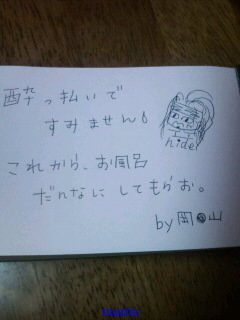 酔っ払いで
すみません!
hide
これから、お風呂
だれなに してもらお。
by 岡●山